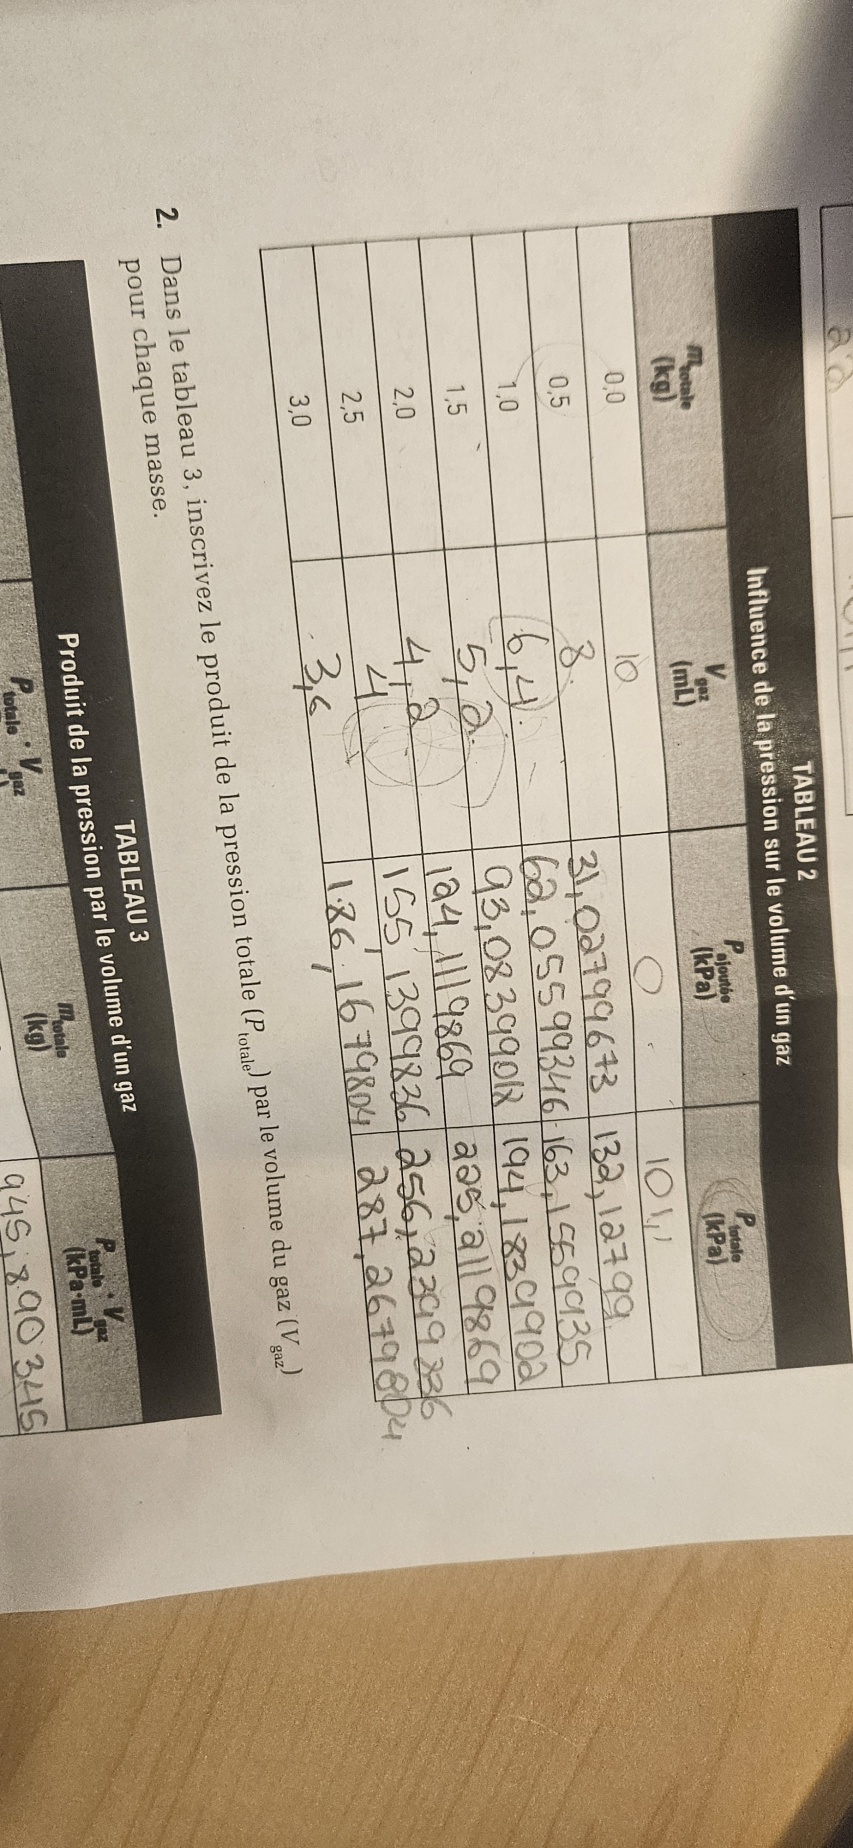 TABLEAU 2
Influence de la pression sur le volume d'un gaz
m totale (kg) V gaz (mL) P ajoutée (kPa) P totale (kPa)
0,0 10 0 101,1
0,5 8 31,02799673 132,12799
1,0 6,4 62,05599346 163,1559935
1,5 5,2 93,08399018 194,1839902
2,0 4,2 124,1119869 225,2119869
2,5 4 155,1399836 256,2399836
3,0 3,6 186,1679804 287,2679804
2. Dans le tableau 3, inscrivez le produit de la pression totale (P totale) par le volume du gaz (V gaz)
pour chaque masse.
TABLEAU 3
Produit de la pression par le volume d'un gaz
P totale · V gaz m totale (kg) P totale · V gaz (kPa·mL)
945,890345